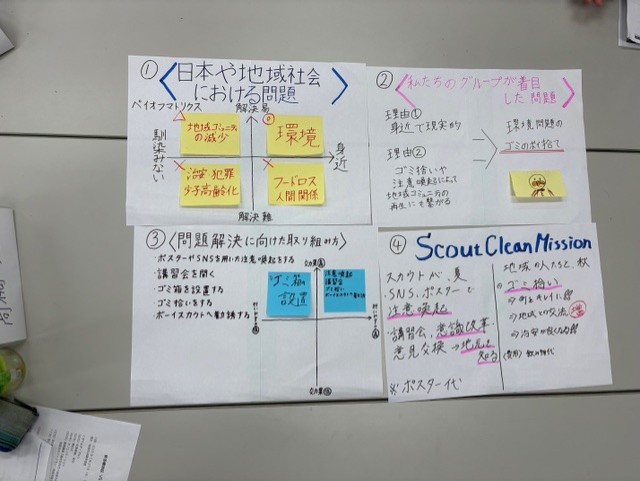 ① 〈日本や地域社会
における問題〉
ペイオフマトリクス
解決易
馴染みない
身近
解決難
地域コミュニティ
の減少
環境
治安 犯罪
少子高齢化
フードロス
人間関係
② 〈私たちのグループが着目
した問題〉
理由①
身近で現実的
理由②
ゴミ拾いや
注意喚起によって
地域コミュニティの
再生にも繋がる
環境問題の
ゴミのポイ捨て
③ 〈問題解決に向けた取り組み方〉
・ポスターやSNSを用いた注意喚起をする
・講習会を開く
・ゴミ箱を設置する
・ゴミ拾いをする
・ボーイスカウトへ勧誘する
効果高
ゴミ箱の
設置
注意喚起
講習会
ゴミ拾い
ボーイスカウトへ勧誘する
④ Scout Clean Mission
スカウトが、夏
・SNS、ポスターで
注意喚起
・講習会、意識改革・
意見交換→地元を
知る
※ポスター代
地域の人たちと、秋
ゴミ拾い
→町をキレイに
→地域との交流